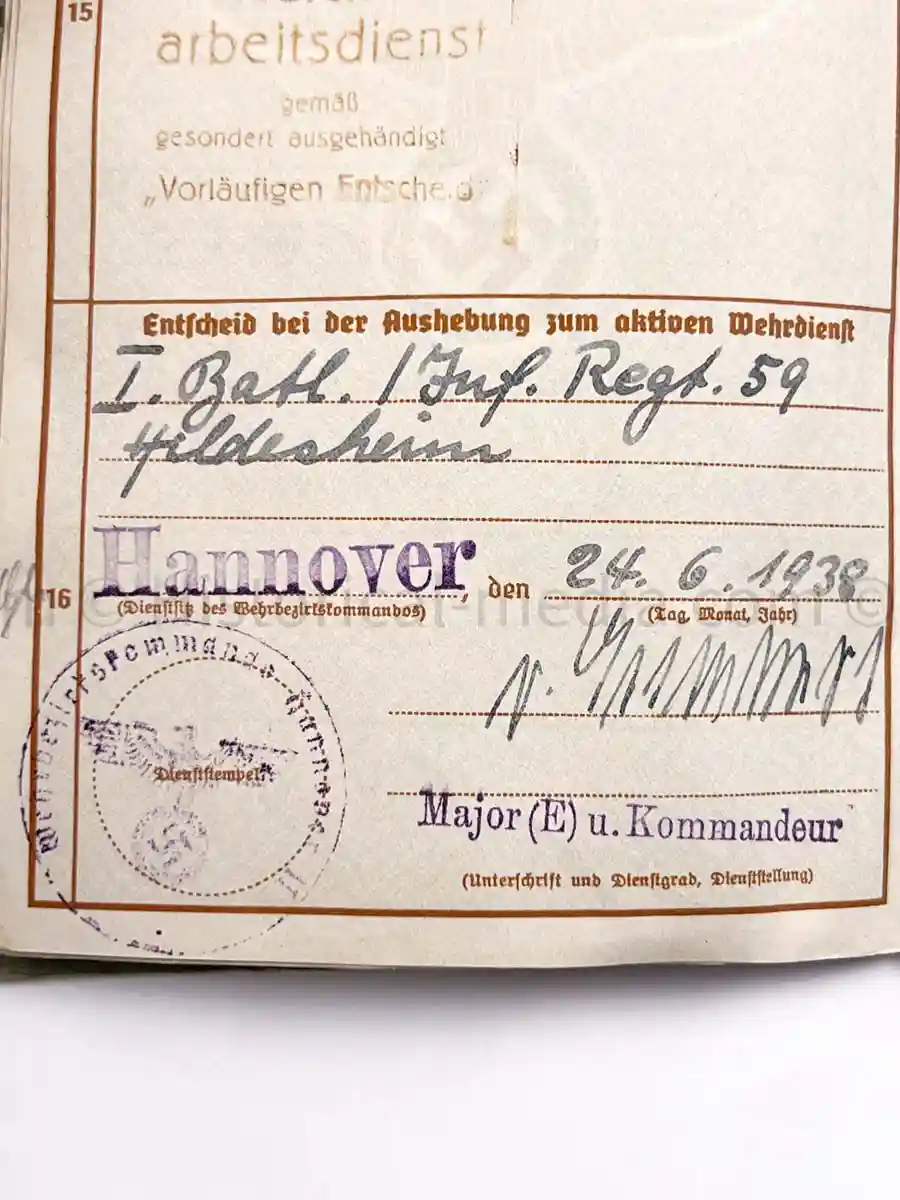 15
arbeitsdienst
gemäß
gesondert ausgehändigt
„Vorläufigen Entscheid“
Entscheid bei der Aushebung zum aktiven Wehrdienst
I. Batl. / Inf. Regt. 59
Hildesheim
Hannover, den 24. 6. 1938
16
(Dienstsitz des Wehrbezirkskommandos) (Tag, Monat, Jahr)
Wehrbezirkskommando Hannover II
v.
Dienststempel
Major (E) u. Kommandeur
(Unterschrift und Dienstgrad, Dienststellung)